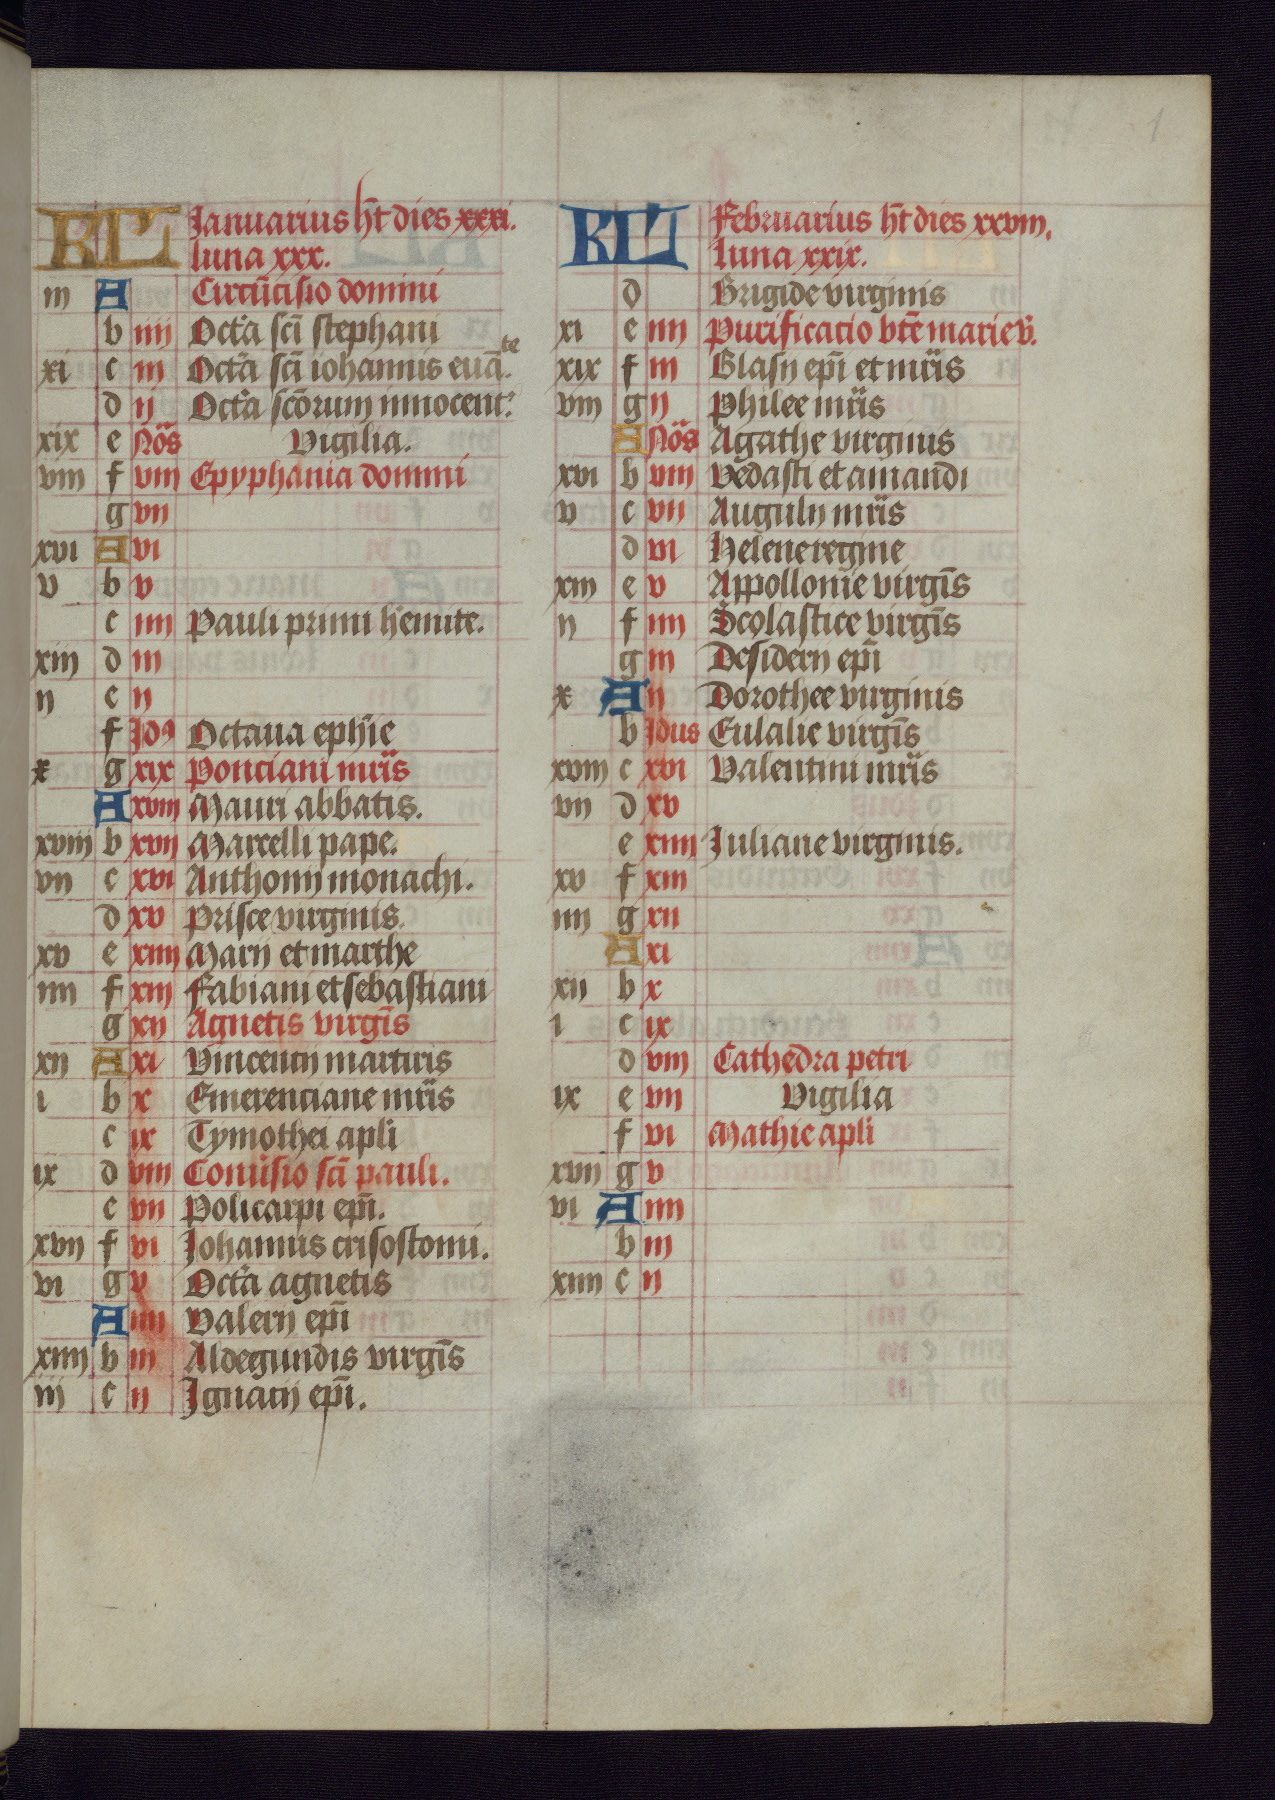 1
KL Januarius ht dies xxxi.
luna xxx.
iii A Circūcisio domini
b iiii Octa sci stephani
xi c iii Octa sci iohannis euāte.
d ii Octa scōrum innocent.
xix e Nōs Vigilia.
viii f viii Epyphania domini
g vii
xvi A vi
v b v
c iiii Pauli primi hemite.
xiii d iii
ii e ii
f Idꝯ Octaua ephīe
x g xix Ponciani mris
A xviii Mauri abbatis.
xviii b xvii Marcelli pape.
vii c xvi Anthonij monachi.
d xv Prisce virginis.
xv e xiiii Marij et marthe
iiii f xiii Fabiani et sebastiani
g xii Agnetis virgīs
xii A xi Vincentij martiris
i b x Emerenciane mris
c ix Tymothei apli
ix d viii Conūsio scī pauli.
e vii Policarpi epī.
xvii f vi Johannis crisostomi.
vi g v Octa agnetis
A iiii Valerij epī
xiiii b iii Aldegundis virgīs
iij c ii Ignacij epī.
KL Februarius ht dies xxviii.
luna xxix.
d Brigide virginis
xi e iiii Purificatio bte marie v.
xix f iii Blasij epī et mris
viii g ii Philee mris
A Nōs Agathe virginis
xvi b viii Vedasti et amandi
v c vii Augulij mris
d vi Helene regine
xiii e v Appollonie virgīs
ii f iiii Scolastice virgīs
g iii Desiderij epī
x A ii Dorothee virginis
b Idus Eulalie virgīs
xviii c xvi Valentini mris
vii d xv
e xiiii Juliane virginis.
xv f xiii
iiii g xii
A xi
xii b x
i c ix
d viii Cathedra petri
ix e vii Vigilia
f vi Mathie apli
xvii g v
vi A iiii
b iii
xiiii c ii